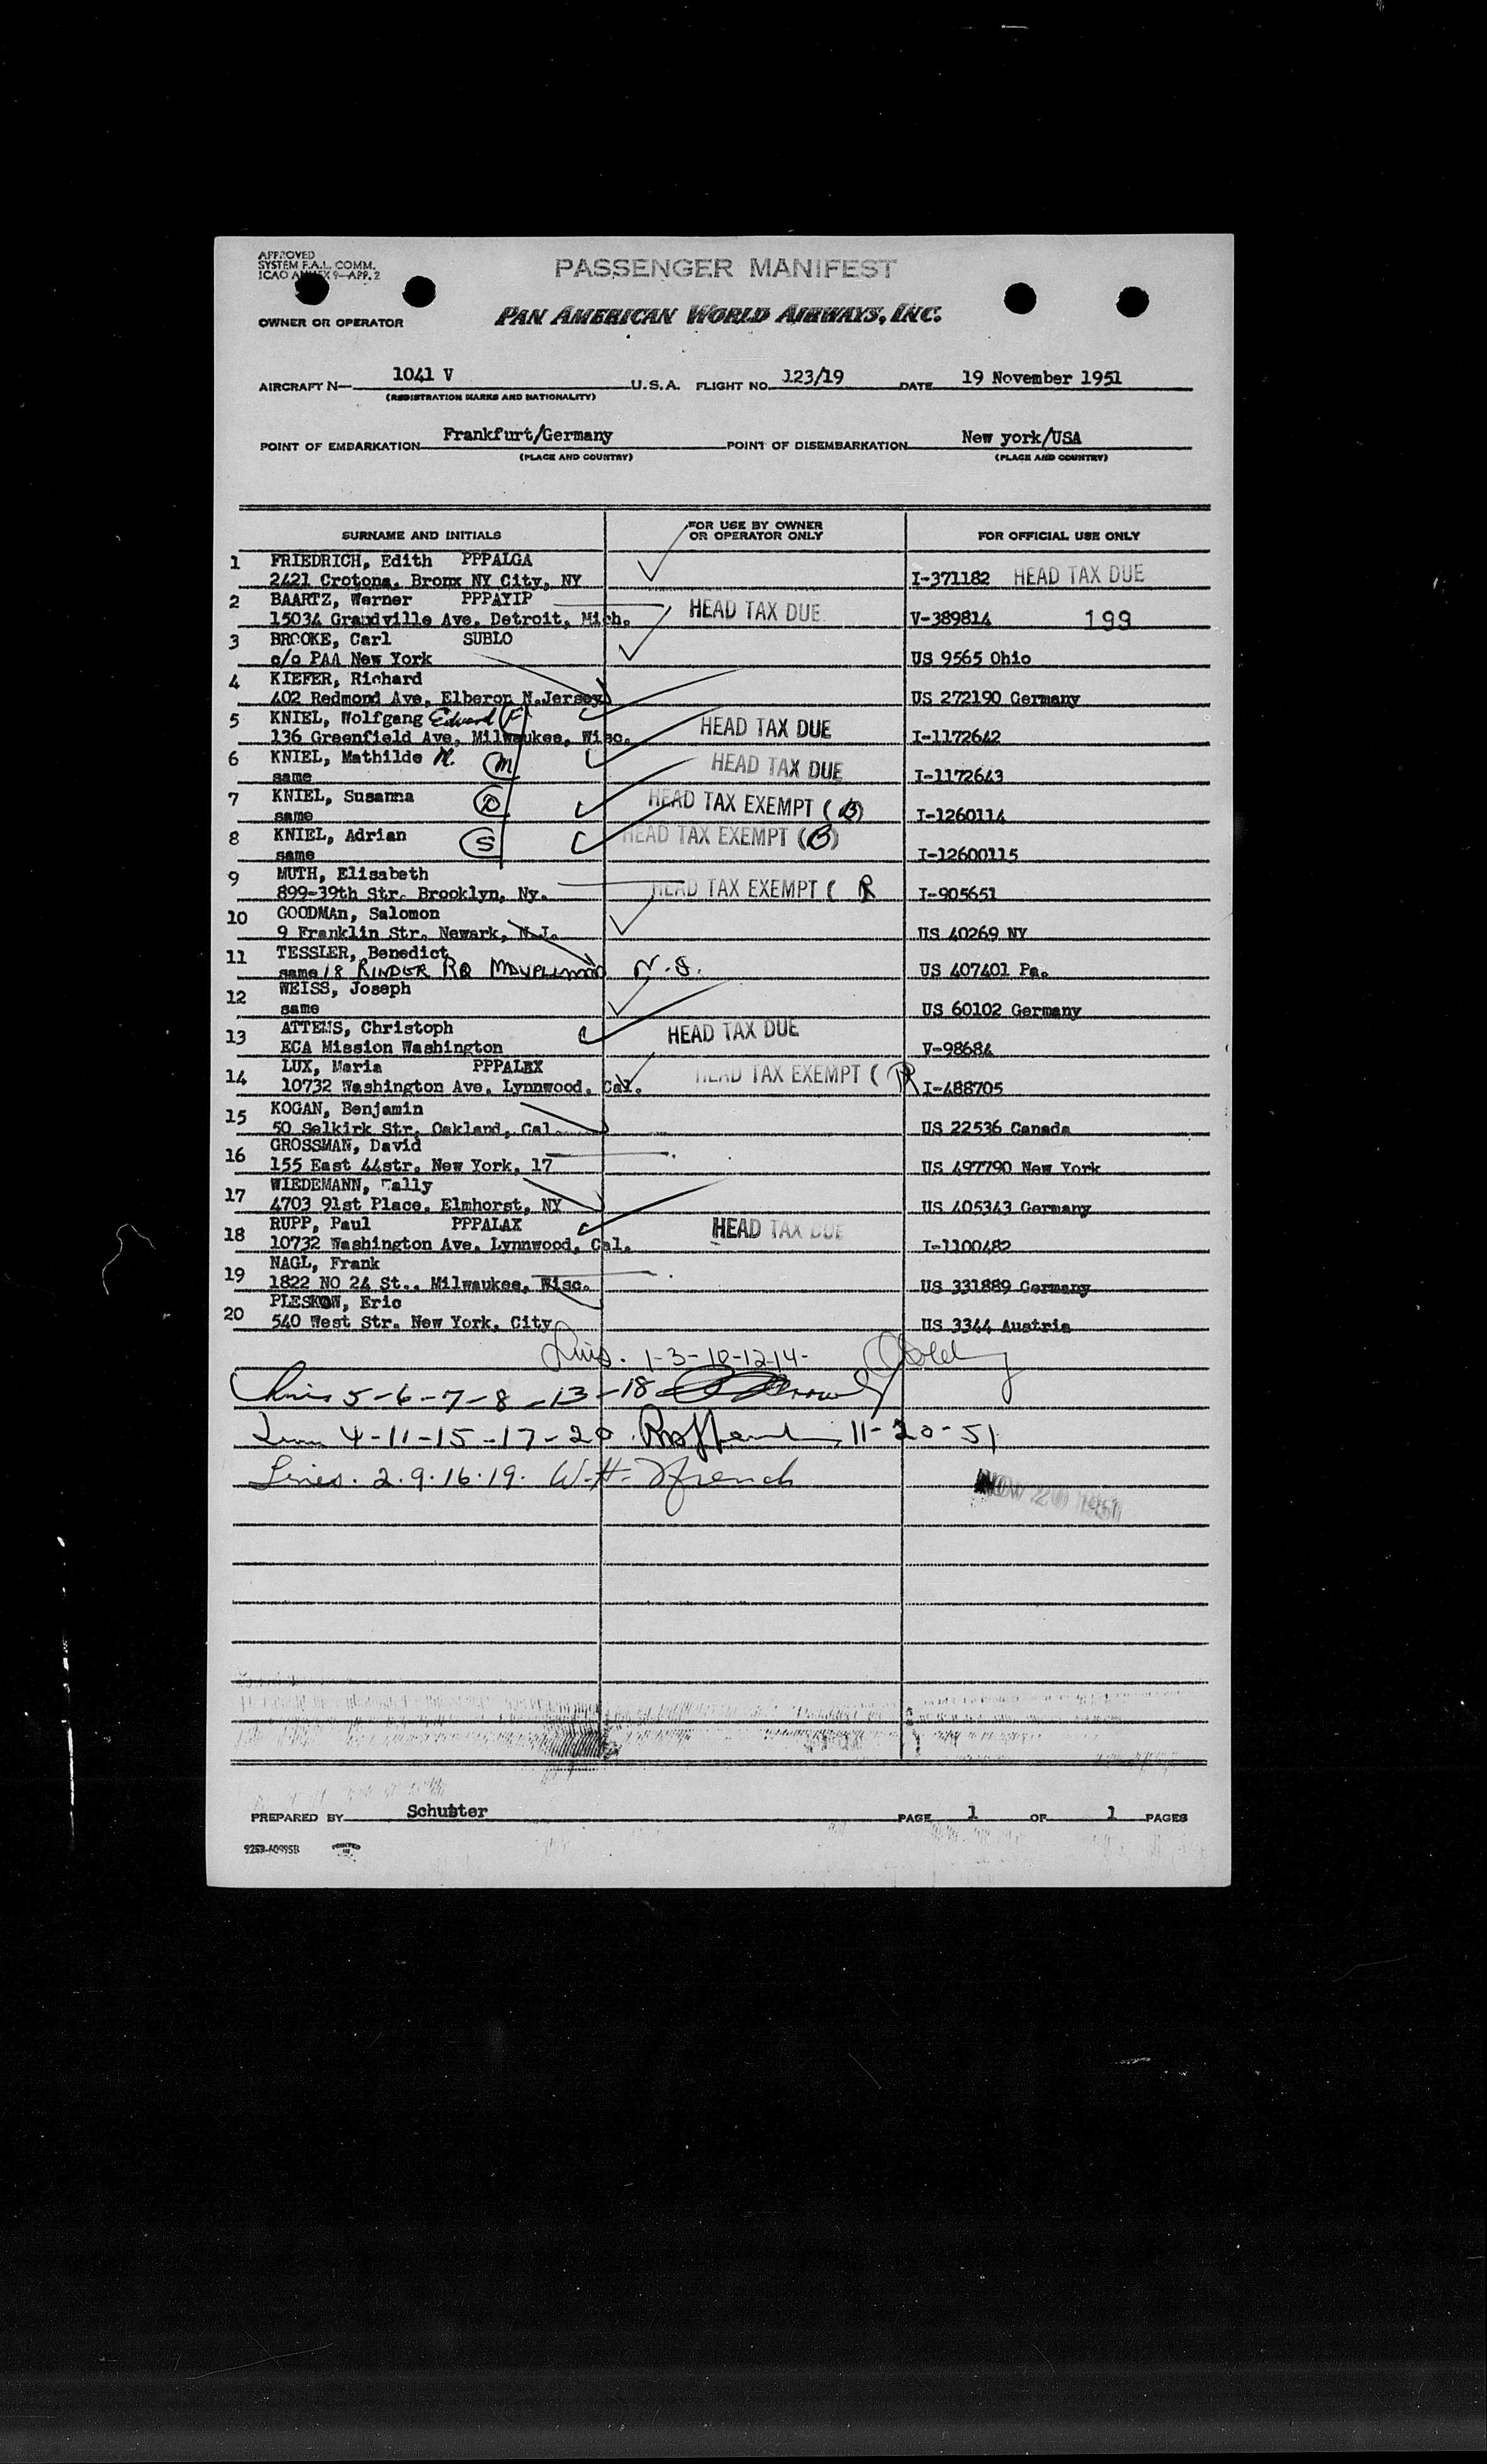 APPROVED
SYSTEM F.A.L. COMM.
ICAO ANNEX 9—APP. 2
PASSENGER MANIFEST
OWNER OR OPERATOR
PAN AMERICAN WORLD AIRWAYS, INC.
AIRCRAFT N— 1041 V U.S.A. FLIGHT NO. 123/19 DATE 19 November 1951
(REGISTRATION MARKS AND NATIONALITY)
POINT OF EMBARKATION Frankfurt/Germany POINT OF DISEMBARKATION New york/USA
(PLACE AND COUNTRY) (PLACE AND COUNTRY)
SURNAME AND INITIALS FOR USE BY OWNER OR OPERATOR ONLY FOR OFFICIAL USE ONLY
1 FRIEDRICH, Edith PPPALGA
2421 Crotona. Bronx NY City, NY I-371182 HEAD TAX DUE
2 BAARTZ, Werner PPPAYIP HEAD TAX DUE
15034 Grandville Ave. Detroit, Mich. V-389814 199
3 BROOKE, Carl SUBLO
c/o PAA New York US 9565 Ohio
4 KIEFER, Richard
402 Redmond Ave, Elberon N.Jersey US 272190 Germany
5 KNIEL, Wolfgang Edward (F) HEAD TAX DUE
136 Greenfield Ave, Milwaukee, Wisc. I-1172642
6 KNIEL, Mathilde M. (M) HEAD TAX DUE
same I-1172643
7 KNIEL, Susanna (D) HEAD TAX EXEMPT (B)
same I-1260114
8 KNIEL, Adrian (S) HEAD TAX EXEMPT (B)
same I-12600115
9 MUTH, Elisabeth
899-39th Str. Brooklyn, Ny. HEAD TAX EXEMPT ( R I-905651
10 GOODMAn, Salomon
9 Franklin Str. Newark, N.J. US 40269 NY
11 TESSLER, Benedict
same 18 RINDER RD N.J. US 407401 Pa.
12 WEISS, Joseph
same US 60102 Germany
13 ATTEMS, Christoph HEAD TAX DUE
ECA Mission Washington V-98684
14 LUX, Maria PPPALEX HEAD TAX EXEMPT ( R
10732 Washington Ave. Lynnwood, Cal. I-488705
15 KOGAN, Benjamin
50 Selkirk Str. Oakland, Cal. US 22536 Canada
16 GROSSMAN, David
155 East 44str. New York, 17 US 497790 New York
17 WIEDEMANN, Wally
4703 91st Place. Elmhorst, NY US 405343 Germany
18 RUPP, Paul PPPALAX HEAD TAX DUE
10732 Washington Ave. Lynnwood, Cal. I-1100482
19 NAGL, Frank
1822 NO 24 St.. Milwaukee, Wisc. US 331889 Germany
20 PLESKOW, Eric
540 West Str. New York. City US 3344 Austria
Lines. 1-3-10-12-14-
Lines 5-6-7-8-13-18
Lines 4-11-15-17-20 11-20-51
Lines. 2.9.16.19. W.H. French
NOV 20 1951
PREPARED BY Schuster PAGE 1 OF 1 PAGES
PRINTED